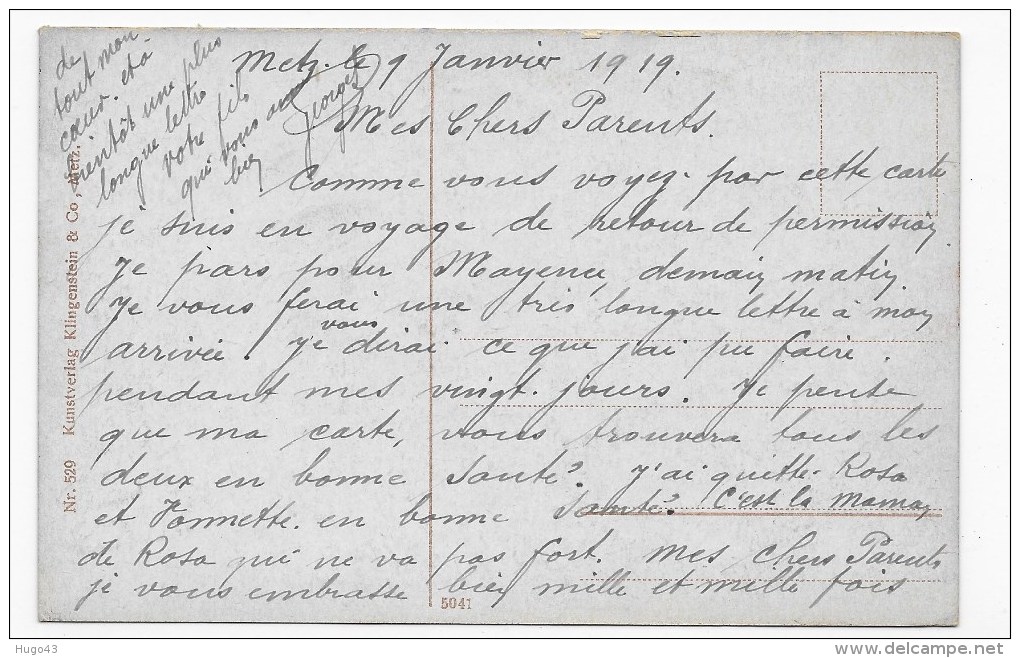 Metz. le 9 Janvier 1919.
Mes Chers Parents.
Comme vous voyez. par cette carte
je suis en voyage de retour de permission
Je pars pour Mayence, demain matin.
Je vous ferai une très longue lettre à mon
arrivée. Je vous dirai ce que j'ai pu faire.
pendant mes vingt. jours. Je pense
que ma carte, vous trouvera tous les
deux en bonne santé. J'ai quitté Rosa
et Vonnette. en bonne santé. C'est la maman
de Rosa qui ne va pas fort. Mes chers Parents
je vous embrasse bien mille et mille fois
de
tout mon
coeur. et à
bientôt une plus
longue lettre
votre fils
qui vous aime
bien
Georges
Nr. 529 Kunstverlag Klingenstein & Co., Metz.
5041
Hugo43
www.delcampe.net